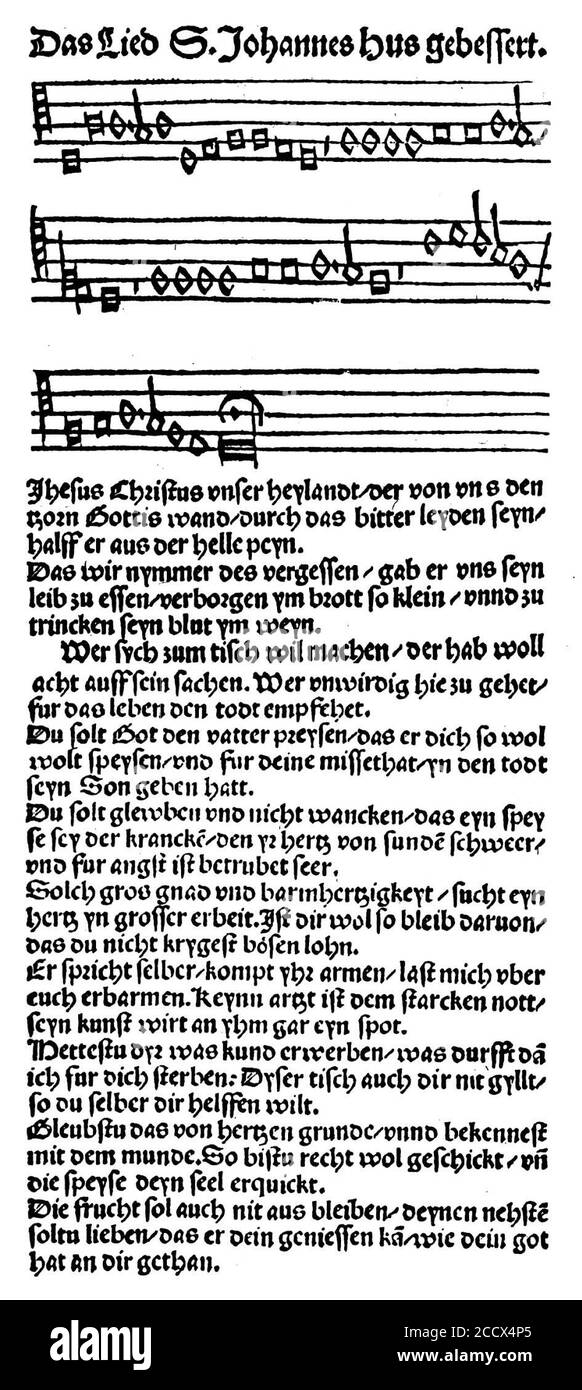 Das Lied S. Johannes Hus gebessert.
Jhesus Christus vnser heylandt/der von vns den
tzorn Gottis wand/durch das bitter leyden seyn/
halff er aus der helle peyn.
Das wir nymmer des vergessen/ gab er vns seyn
leib zu essen/verborgen ym brott so klein/vnnd zu
trincken seyn blut ym weyn.
Wer sych zum tisch wil machen/der hab woll
acht auff sein sachen. Wer vnwirdig hie zu gehet/
fur das leben den todt empfehet.
Du solt Got den vatter preysen/das er dich so wol
wolt speysen/vnd fur deine missethat/yn den todt
seyn Son geben hatt.
Du solt glewben vnd nicht wancken/das eyn spey
se sey der kranckē/den yr hertz von sundē schweer/
vnd fur angst ist betrubet seer.
Solch gros gnad vnd barmhertzigkeyt/sucht eyn
hertz yn grosser erbeit. Ist dir wol so bleib daruon/
das du nicht krygest bösen lohn.
Er spricht selber/kompt yhr armen/last mich vber
euch erbarmen. Keynn artzt ist dem starcken nott/
seyn kunst wirt an yhm gar eyn spot.
Hettestu dyr was kund erwerben/was durfft dā
ich fur dich sterben: Dyser tisch auch dir nit gyllt/
so du selber dir helffen wilt.
Gleubstu das von hertzen grunde/vnnd bekennest
mit dem munde. So bistu recht wol geschickt/vñ
die speyse deyn seel erquickt.
Die frucht sol auch nit aus bleiben/deynen nehstē
soltu lieben/das er dein geniessen kā/wie dein got
hat an dir gethan.
alamy
Image ID: 2CCX4P5
www.alamy.com